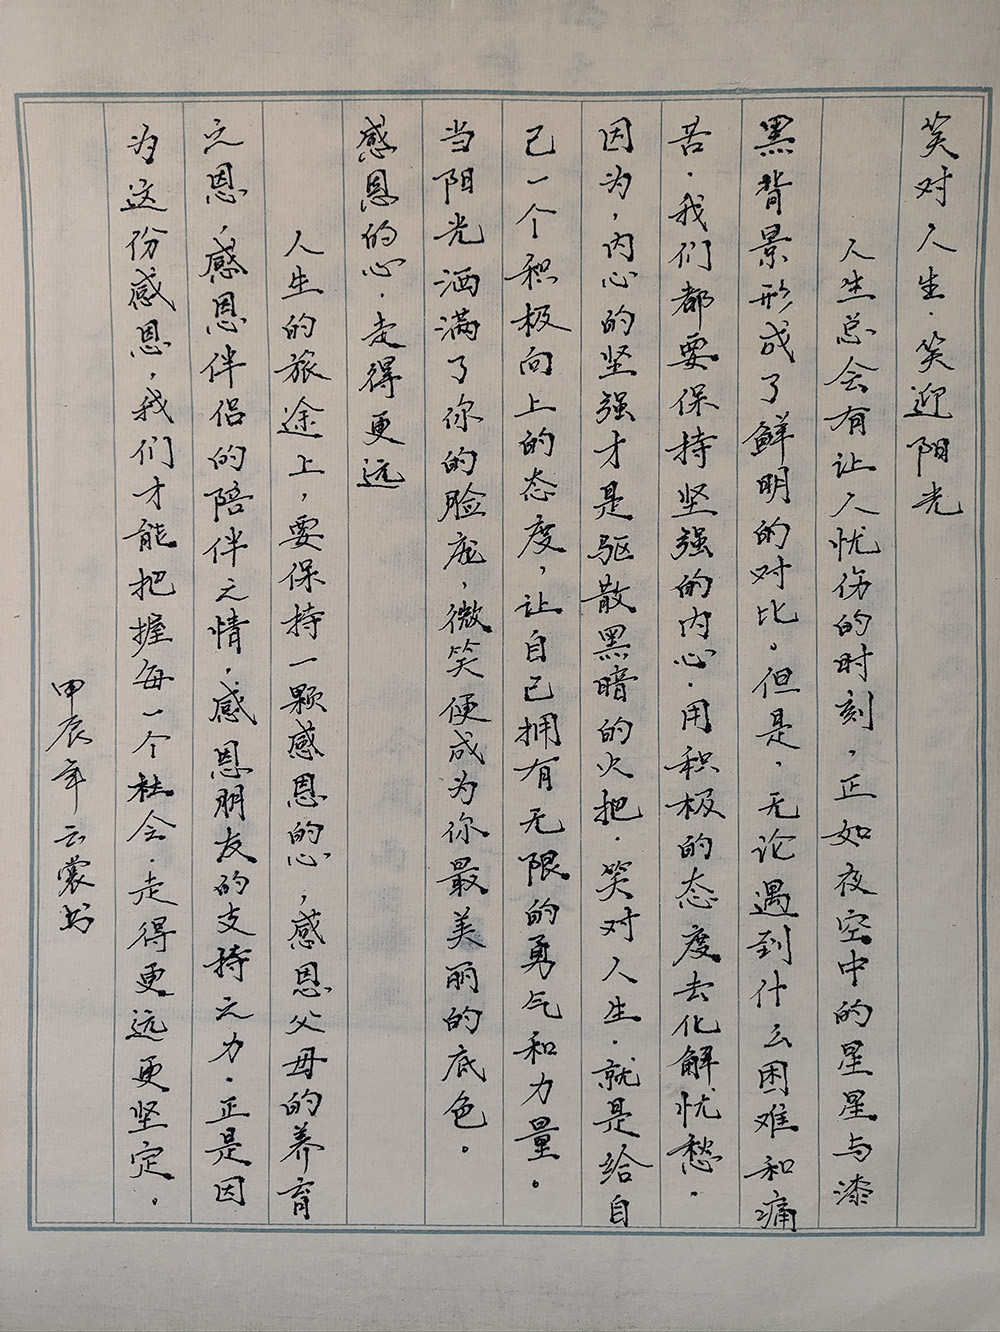 笑对人生.笑迎阳光
人生总会有让人忧伤的时刻，正如夜空中的星星与漆
黑背景形成了鲜明的对比。但是，无论遇到什么困难和痛
苦.我们都要保持坚强的内心.用积极的态度去化解忧愁.
因为，内心的坚强才是驱散黑暗的火把.笑对人生.就是给自
己一个积极向上的态度，让自己拥有无限的勇气和力量。
当阳光洒满了你的脸庞，微笑便成为你最美丽的底色。
感恩的心.走得更远
人生的旅途上，要保持一颗感恩的心，感恩父母的养育
之恩，感恩伴侣的陪伴之情，感恩朋友的支持之力.正是因
为这份感恩，我们才能把握每一个社会.走得更远更坚定.
甲辰年云裳书